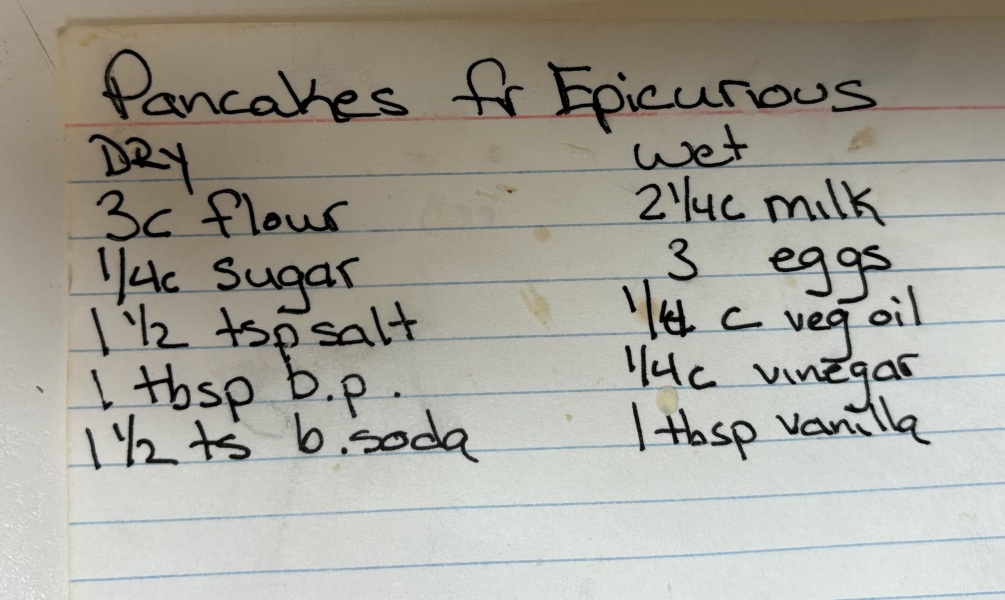 Pancakes fr Epicurious
DRY wet
3c flour 2 1/4c milk
1/4c sugar 3 eggs
1 1/2 tsp salt 1/4 c veg oil
1 tbsp b.p. 1/4c vinegar
1 1/2 ts b.soda 1 tbsp vanilla